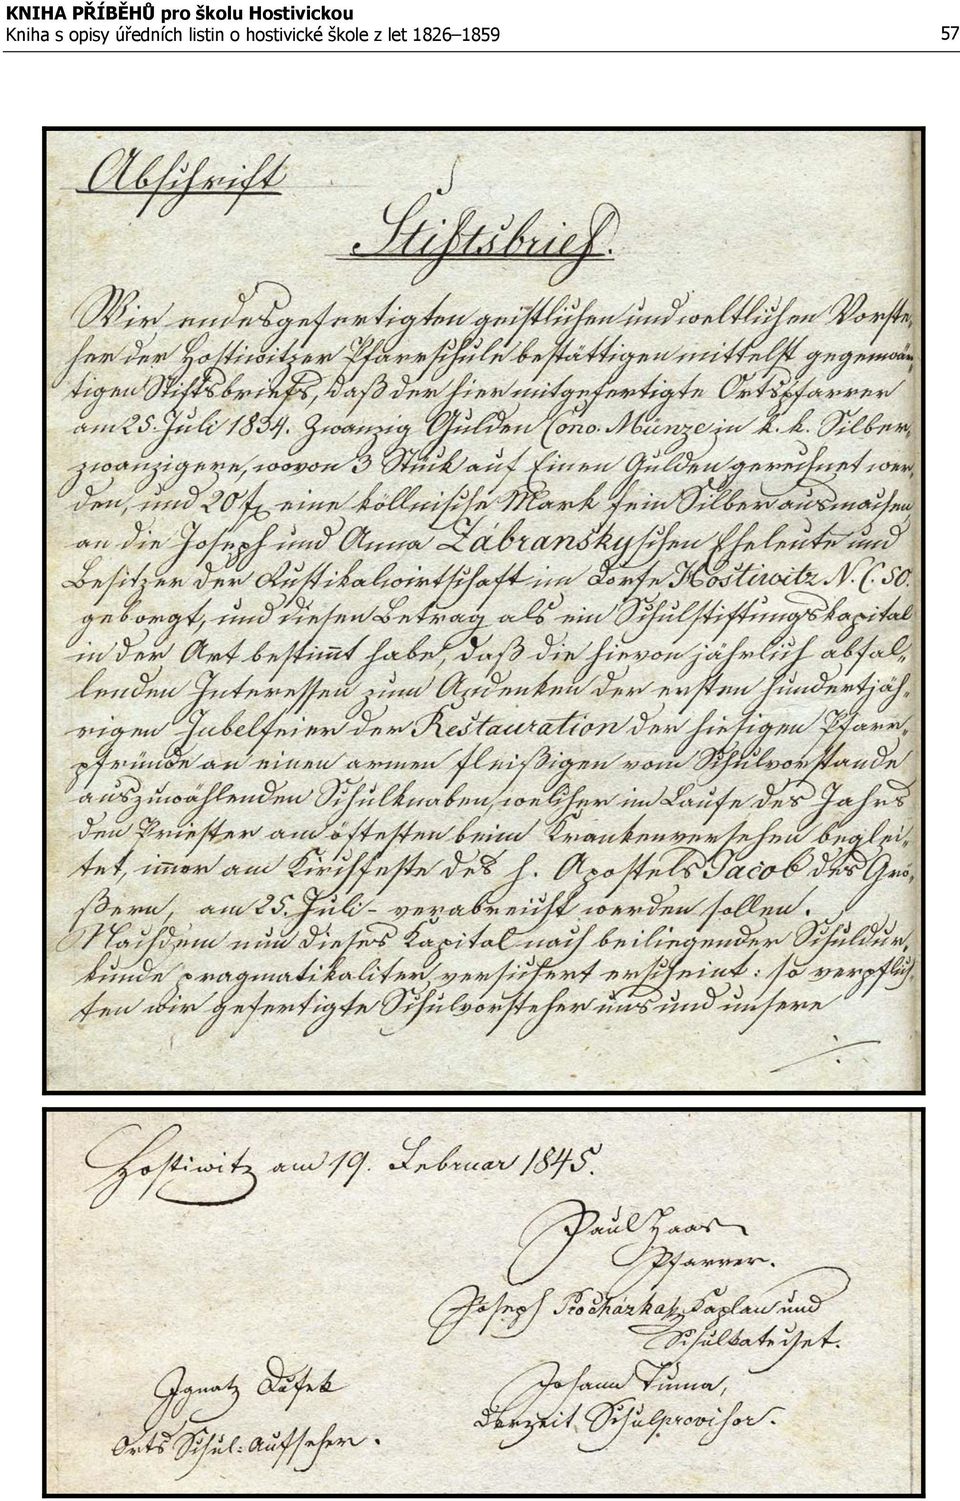 KNIHA PŘÍBĚHŮ pro školu Hostivickou
Kniha s opisy úředních listin o hostivické škole z let 1826–1859
57
Abschrift
Stiftsbrief.
Wir endesgefertigten geistlichen und weltlichen Vorste-
her der Hostiwitzer Pfarrschule bestättigen mittelst gegenwär-
tigen Stiftsbriefs, daß der hier mitgefertigte Ortspfarrer
am 25. Juli 1834. Zwanzig Gulden Conv. Münze in k. k. Silber-
zwanzigern, wovon 3 Stück auf Einen Gulden gerechnet wer-
den, und 20 f eine köllnische Mark fein Silber ausmachen,
an die Joseph und Anna Zábranskyschen Eheleute und
Besitzer der Rustikalwirtschaft im Dorfe Hostiwitz N. C. 50.
geborgt, und diesen Betrag als ein Schulstiftungskapital
in der Art bestimt habe, daß die hievon jährlich abfal-
lenden Interessen zum Andenken der ersten hundertjäh-
rigen Jubelfeier der Restauration der hiesigen Pfarr-
pfründe an einen armen fleißigen vom Schulvorstande
auszuwählenden Schulknaben, welcher im Laufe des Jahrs
den Priester am öftesten beim Krankenversehen beglei-
tet, imer am Kirchfeste des h. Apostels Jacob des Grö-
ßern, am 25. Juli - verabreicht werden sollen.
Nachdem nun dieses Kapital nach beiliegender Schuldur-
kunde pragmatikaliter versichert erscheint: so verpflich-
ten wir gefertigte Schulvorsteher uns und unsere
./.
Hostiwitz am 19. Februar 1845.
Paul Haas
Pfarrer.
Joseph Procházka, Kaplan und
Schulkatechet.
Ignatz Dusek
Johann Tuma,
derzeit Schulprovisor.
Orts Schul-Aufseher.